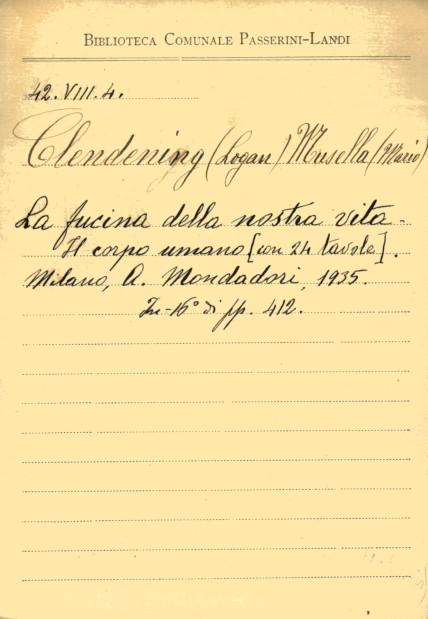 BIBLIOTECA COMUNALE PASSERINI-LANDI
42.VIII.4.
Clendening (Logan) Musella (Mario)
La fucina della nostra vita -
Il corpo umano [con 24 tavole].
Milano, A. Mondadori, 1935.
In-16° di pp. 412.